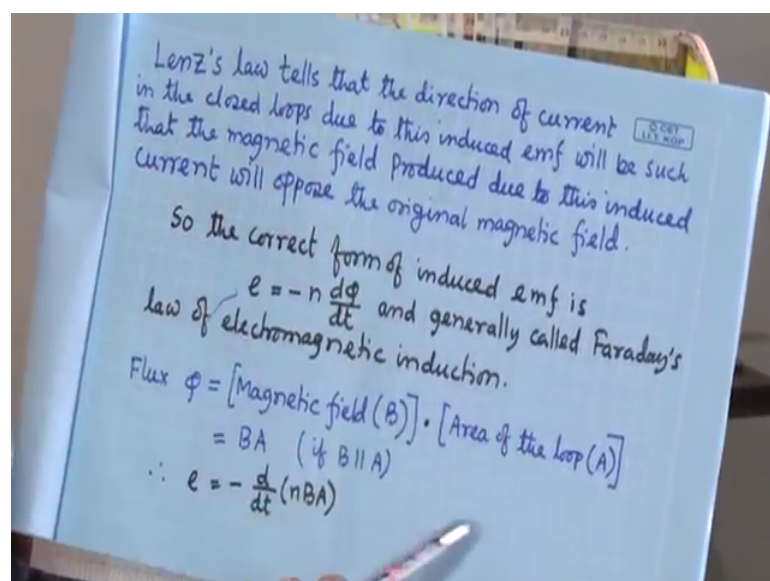 Lenz's law tells that the direction of current
in the closed loops due to this induced emf will be such
that the magnetic field produced due to this induced
current will oppose the original magnetic field.
© CET
I.I.T. KGP
So the correct form of induced emf is
e = - n dφ/dt and generally called Faraday's
law of electromagnetic induction.
Flux φ = [Magnetic field (B)] · [Area of the loop (A)]
= BA (if B || A)
∴ e = - d/dt (nBA)